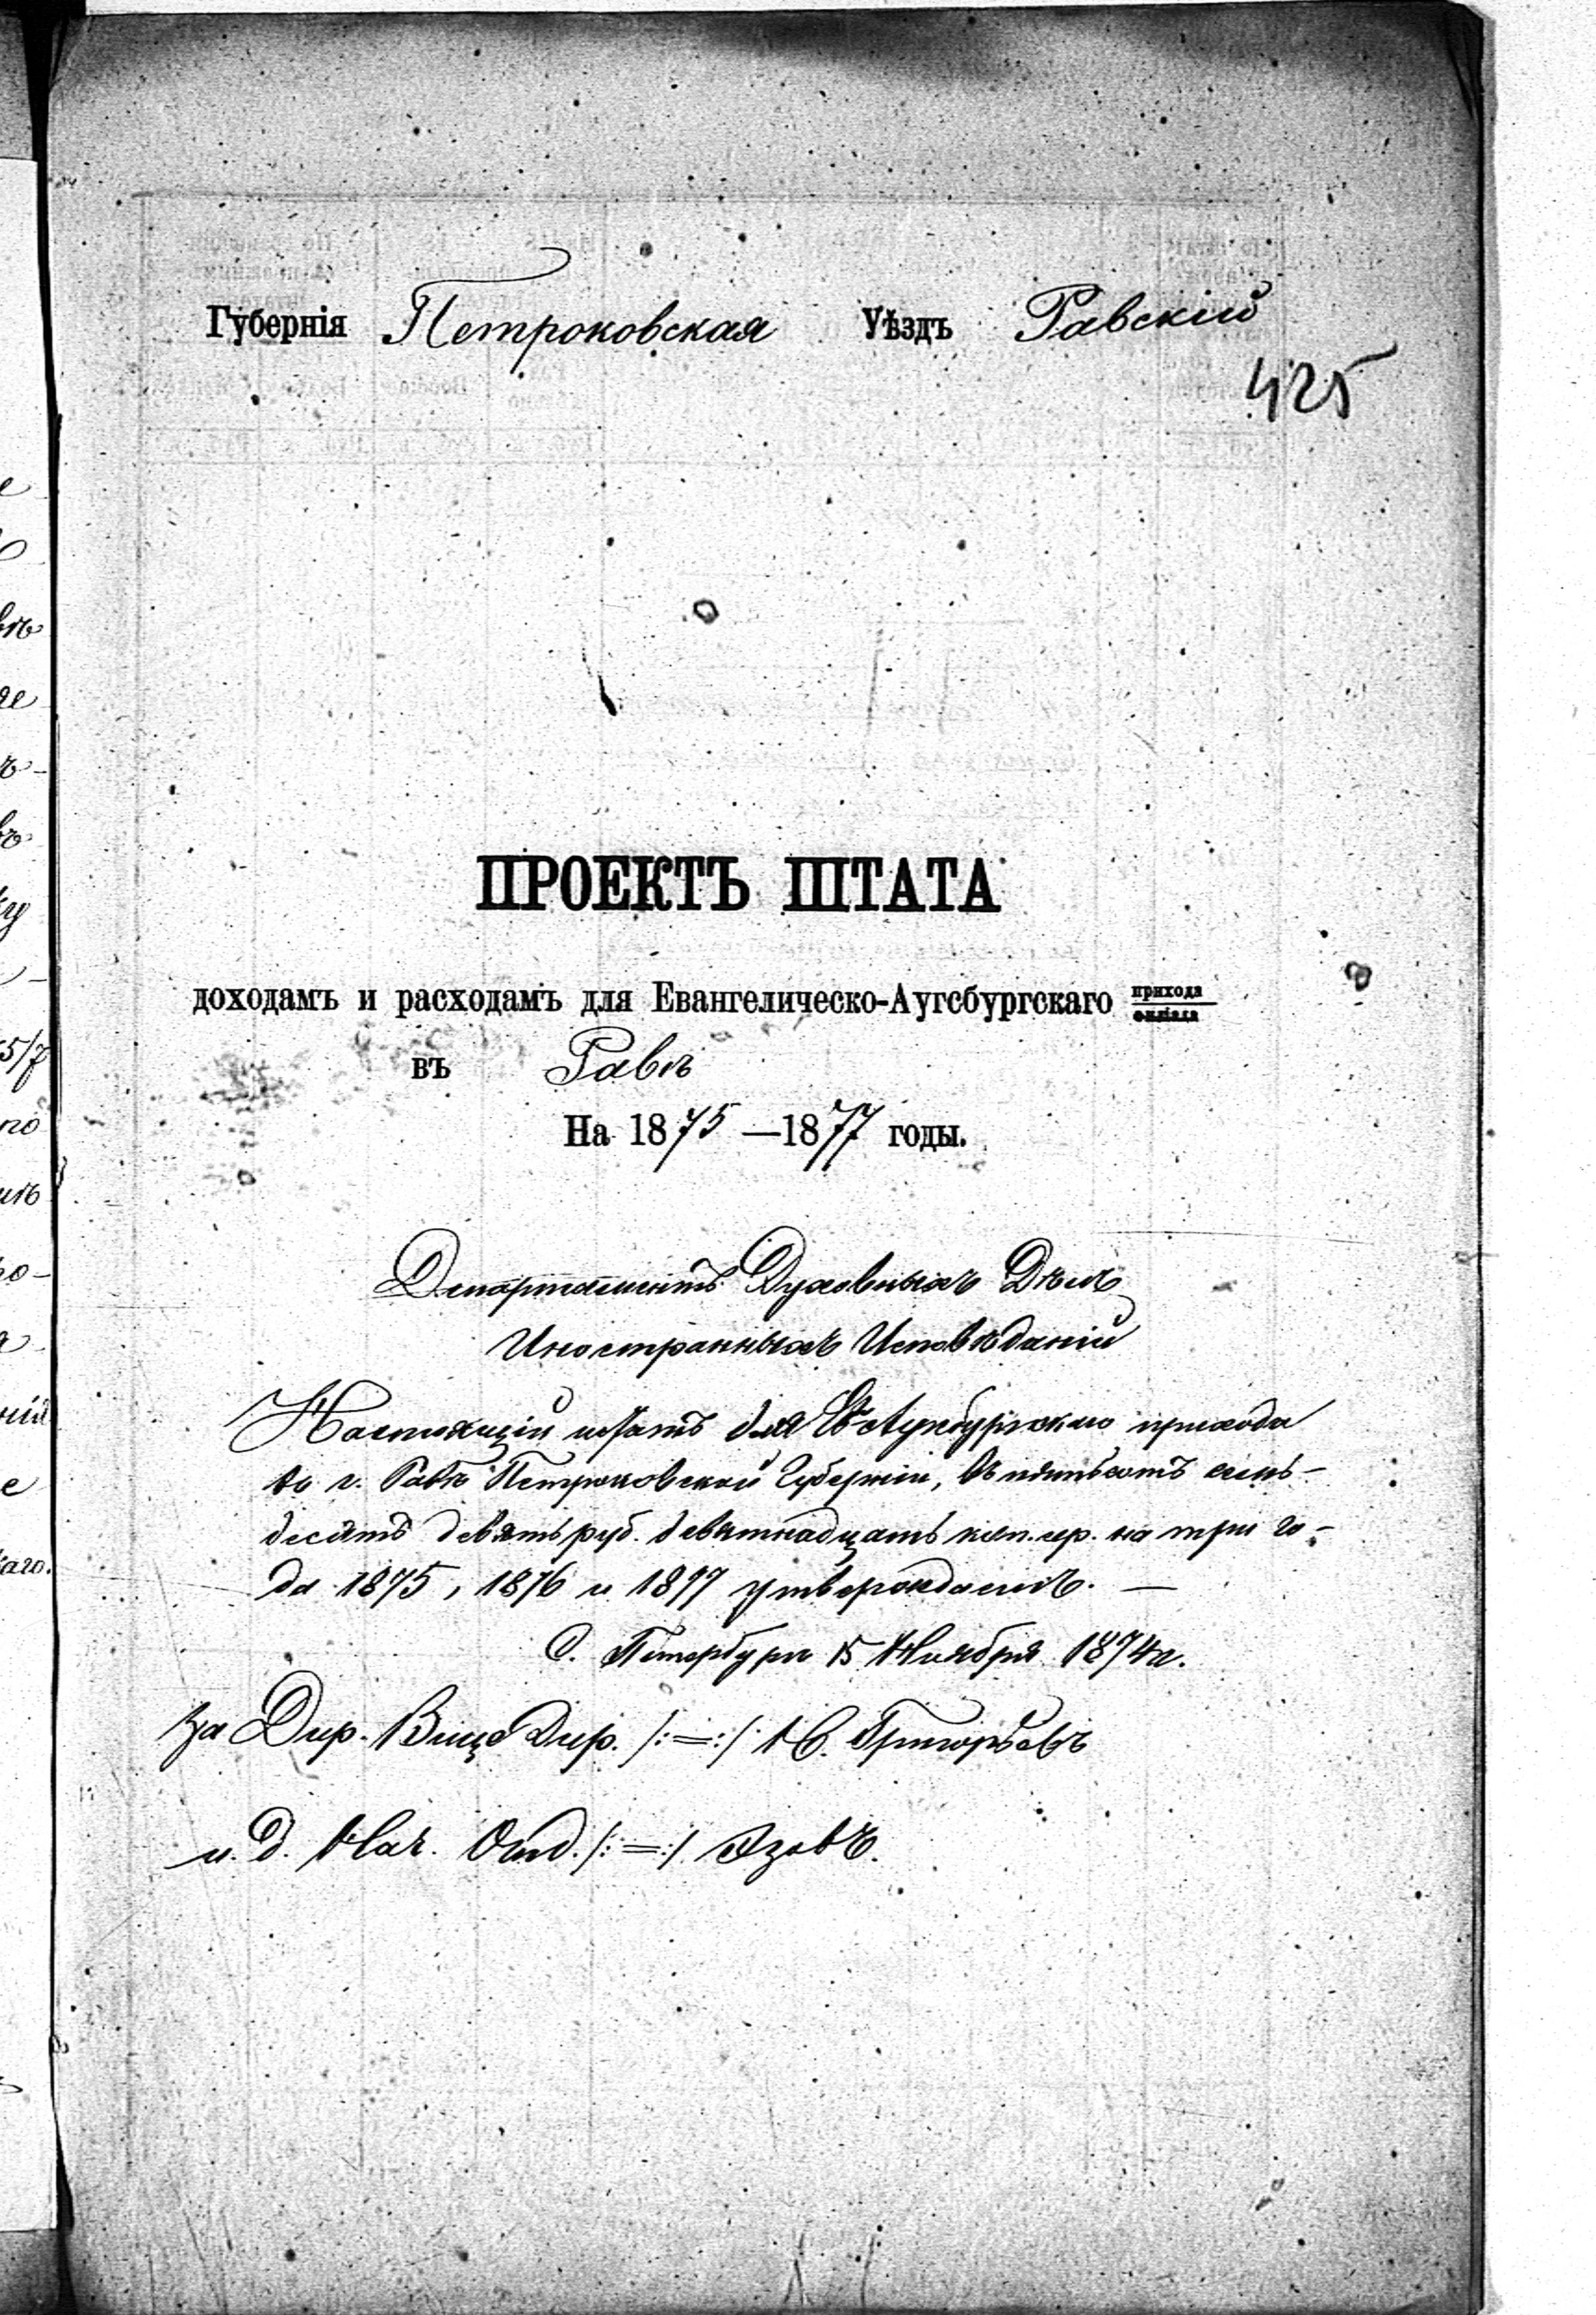 Губернія Петроковская Уѣздъ Равскій
425
ПРОЕКТЪ ШТАТА
доходамъ и расходамъ для Евангелическо-Аугсбургскаго прихода
филіала
въ Равѣ
На 1875 —1877 годы.
Департаментъ Духовныхъ Дѣлъ
Иностранныхъ Исповѣданій
Настоящій штатъ для Ев-Аугсбургскаго прихода
въ г. Равѣ Петроковской Губерніи, въ пятьсотъ семь-
десятъ девять руб. девятнадцать коп. сер. на три го-
да 1875, 1876 и 1877 утверждаетъ. —
С. Петербургъ 15 Ноября 1874 г.
За Дир. Вице Дир. /:=:/ Григорьевъ
и. д. Нач. Отд. /:=:/ Язовъ.